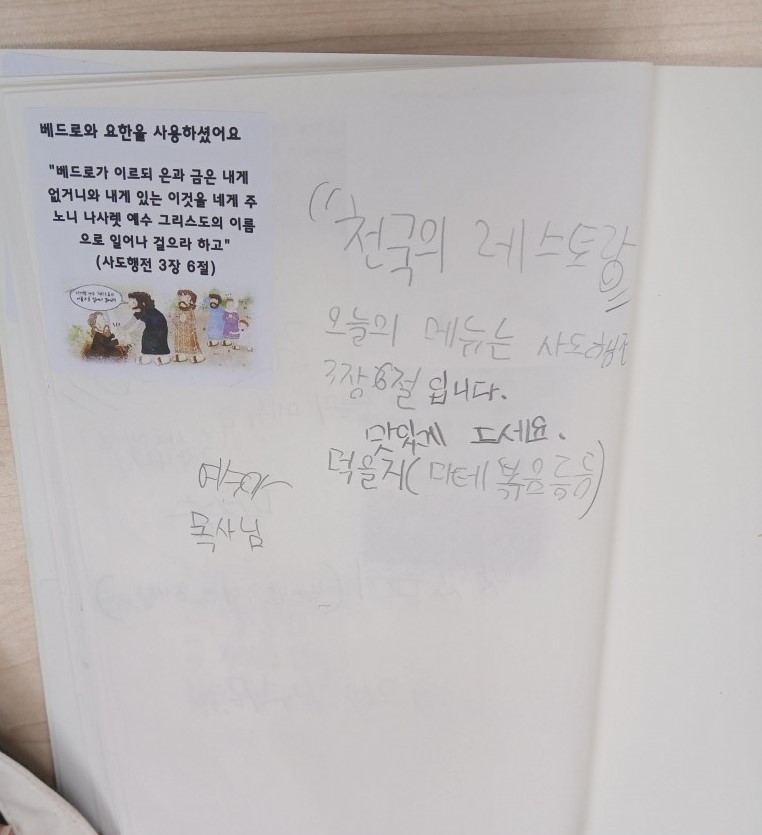 베드로와 요한을 사용하셨어요
"베드로가 이르되 은과 금은 내게
없거니와 내게 있는 이것을 네게 주
노니 나사렛 예수 그리스도의 이름
으로 일어나 걸으라 하고"
(사도행전 3장 6절)
"천국의 레스토랑"
오늘의 메뉴는 사도행전
3장 6절 입니다.
맛있게 드세요.
먹을치(마테복음등등)
목사님